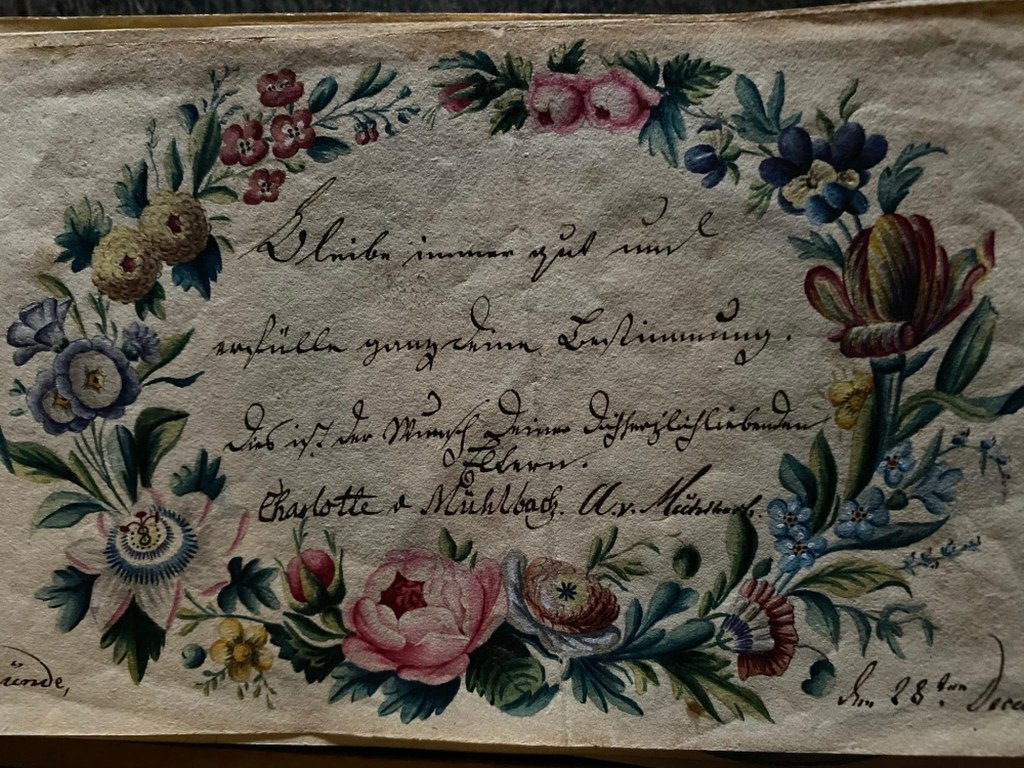 Bleibe immer gut und
erfülle ganz deine Bestimmung.
Dies ist der Wunsch Deiner Dichherzlichliebenden
Eltern.
Charlotte v Mühlbach. A. v. Mühlbach.
ünde,
den 28ten Dece